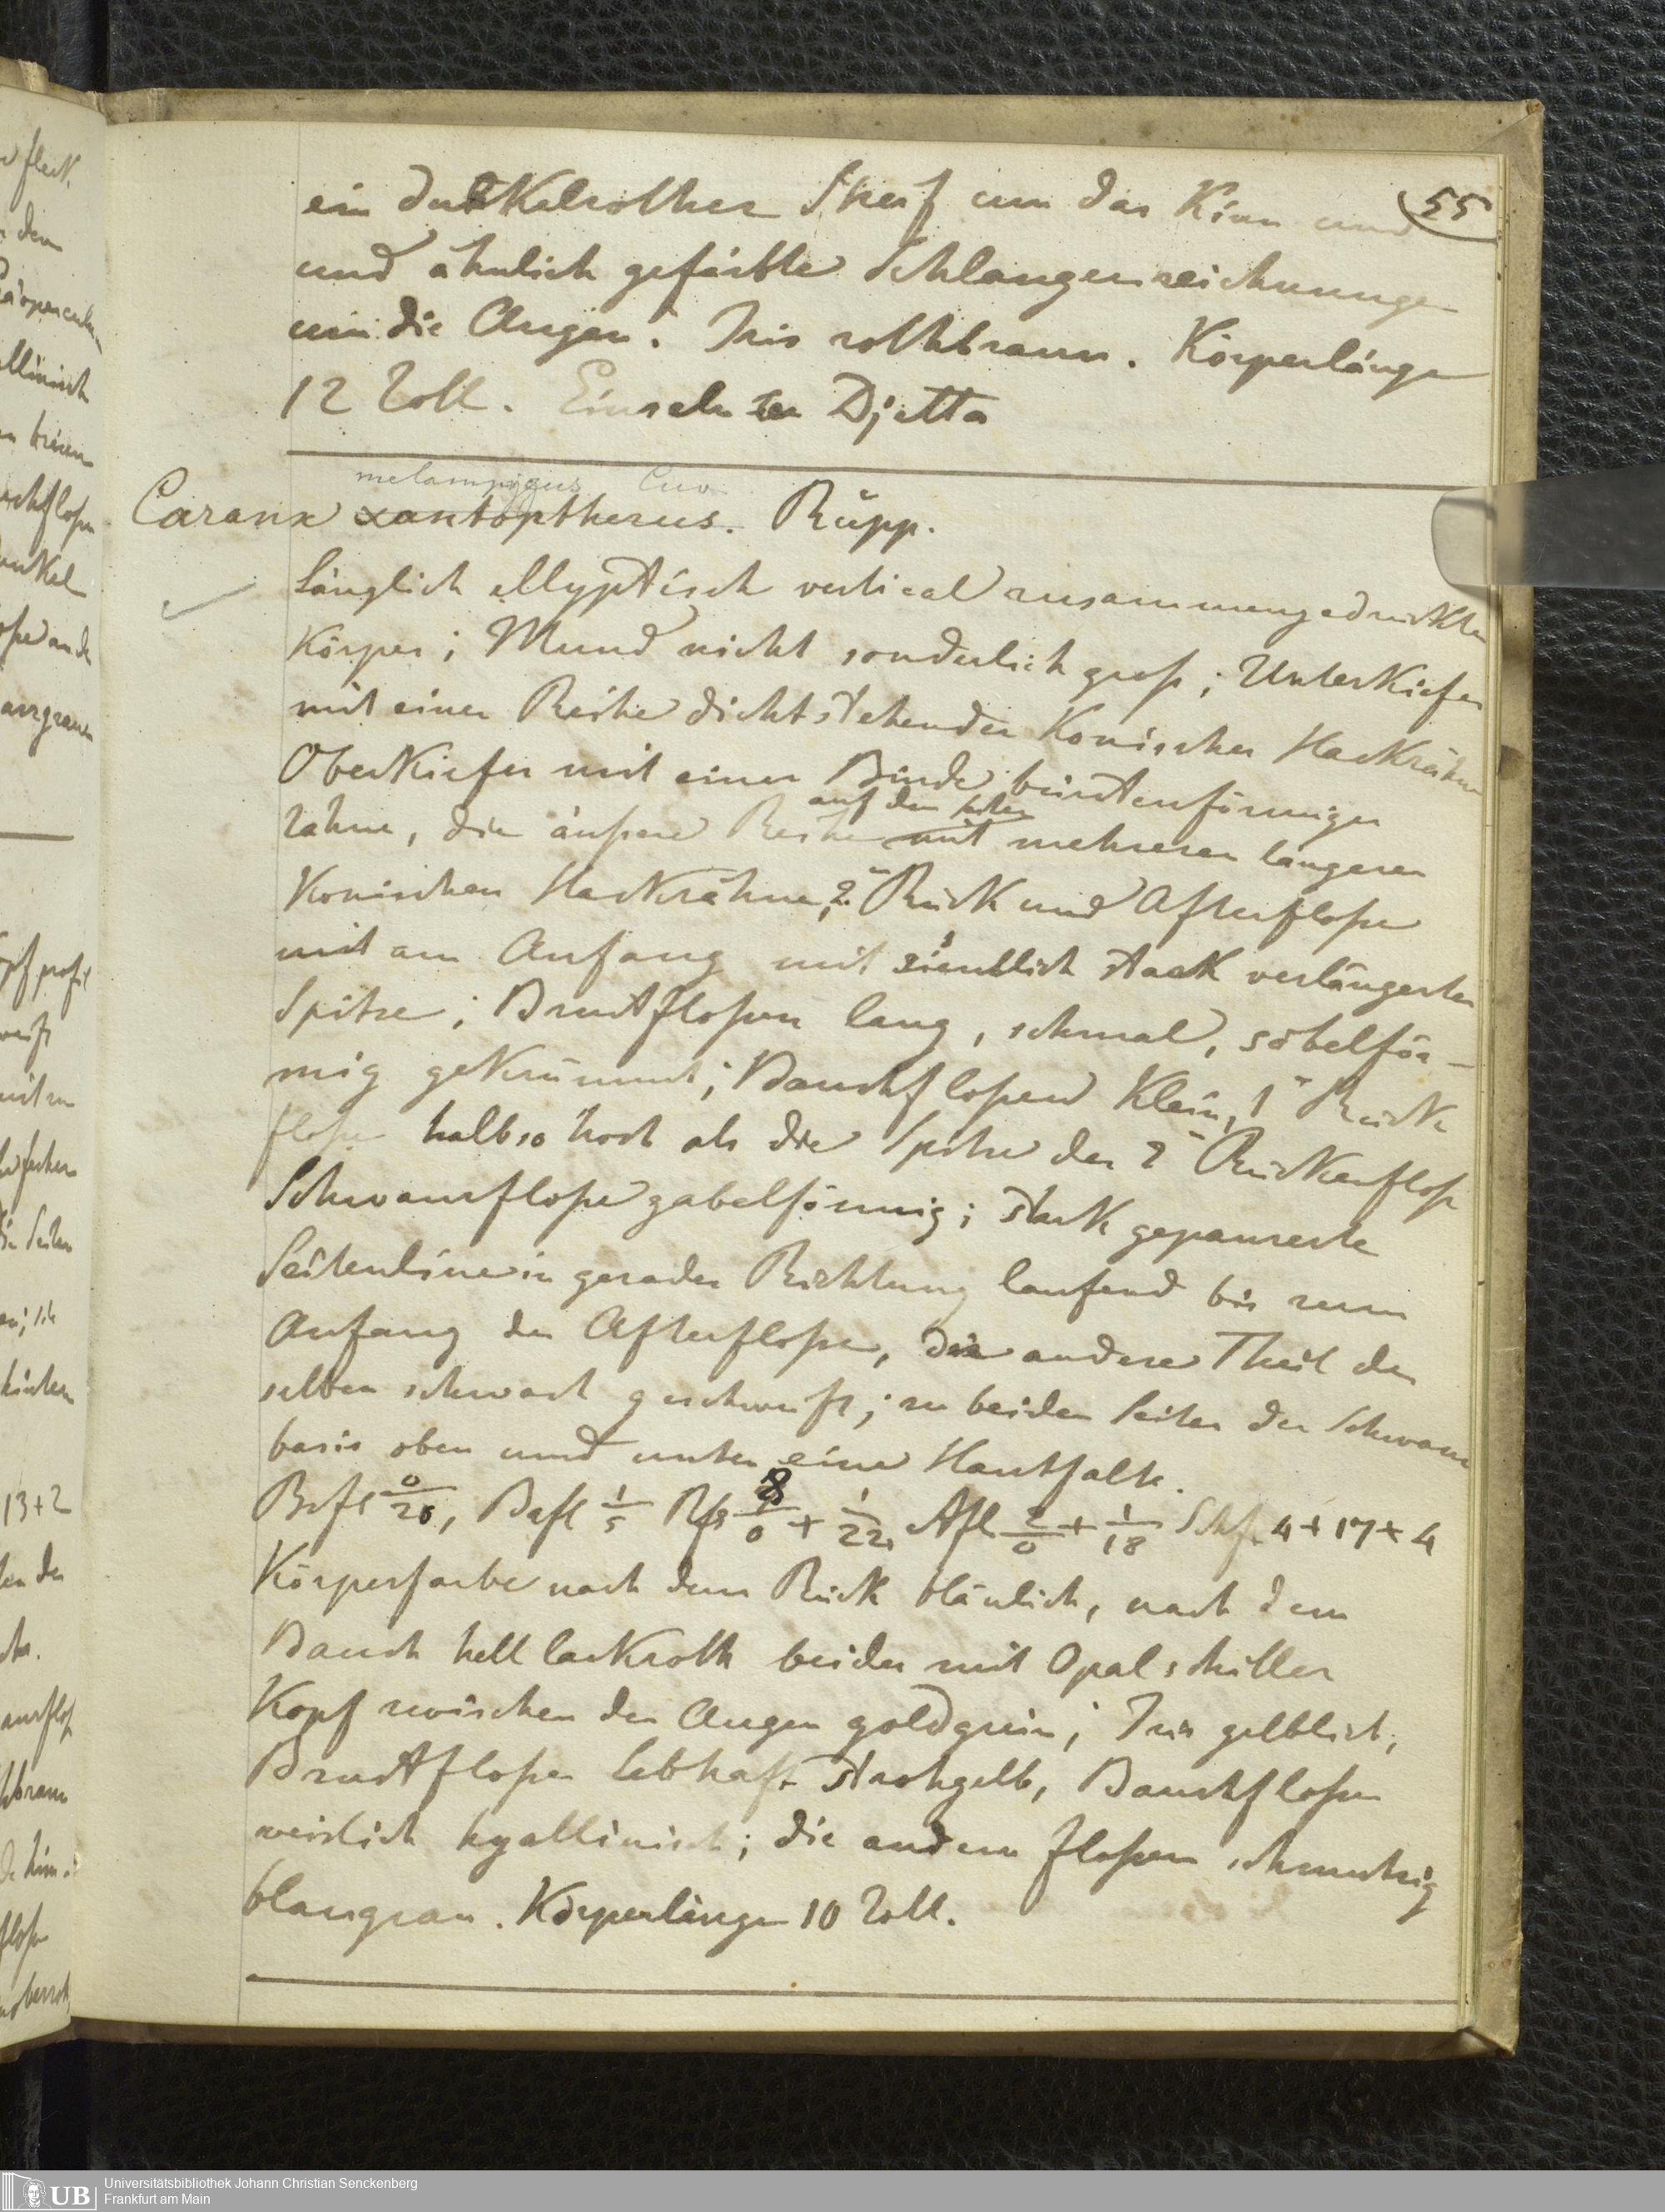 55
ein dunkelrother Streif um das Kinn und
und ähnlich gefärbte Schlangenzeichnungen
um die Augen. Iris rothbraun. Körperlänge
12 Zoll. Einzeln zu Djetta
melampygus Cuv.
Caranx xantoptherus. Rüpp.
Länglich ellyptisch vertical zusammengedrückter
Körper; Mund nicht sonderlich groß; Unterkiefer
mit einer Reihe dichtstehender Konischer Hackzähne
Oberkiefer mit einer Binde bürstenförmiger
auf den seiten
Zähne, die äußere Reihe mit mehreren längeren
Konischen Hackzähne, 2te Rück und Afterfloße
mit am Anfang mit ziemlich stark verlängerter
Spitze; Brustfloßen lang, schmal, säbelför-
mig gekrümmt; Bauchfloßen Klein, 1te Rück
floße halb so hoch als die Spitze der 2te Rückenfloße
Schwanzfloße gabelförmig; stark gepanzerte
Seitenlinie in gerader Richtung laufend bis zum
Anfang der Afterfloße, der andere Theil der
selben schwach geschweift; zu beiden Seiten der Schwanz
basis oben und unten eine Hautfalte.
Brfl 0/20, Bafl 1/5 Rfl 8/0 + 1/22, Afl 2/0 + 1/18 Schf. 4+17+4
Körperfarbe nach dem Rück bläulich, nach dem
Bauch hell lackroth beides mit Opalschiller
Kopf zwischen den Augen goldgrün; Iris gelblich;
Brustfloßen lebhaft strohgelb, Bauchfloßen
weislich hyallinisch; die andern floßen schmutzig
blaugrau. Körperlänge 10 Zoll.
Universitätsbibliothek Johann Christian Senckenberg
Frankfurt am Main
UB